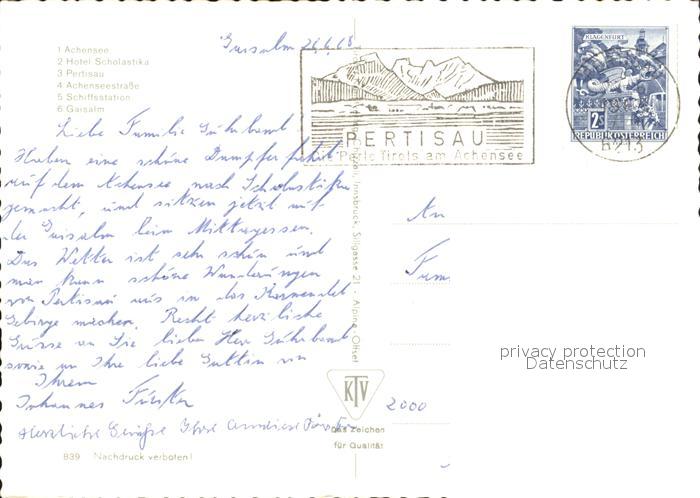 Gaisalm 26.6.68
1 Achensee
2 Hotel Scholastika
3 Pertisau
4 Achenseestraße
5 Schiffsstation
6 Gaisalm
KLAGENFURT
2S
REPUBLIK ÖSTERREICH
6213
PERTISAU
Perle Tirols am Achensee
Liebe Familie
Haben eine schöne Dampferfahrt
auf dem Achensee nach Scholastika
gemacht, und sitzen jetzt auf
der Gaisalm beim Mittagessen.
Das Wetter ist sehr schön und
man kann schöne Wanderungen
von Pertisau aus in das Karwendel
Gebirge machen. Recht herzliche
Grüsse an Sie lieber Herr
sowie an Ihre liebe Gattin von
Ihrem
Johannes
Herzliche Grüße Ihre
An
Fam.
2000
Innsbruck, Sillgasse 21 - Alpine Offset
KTV
Das Zeichen
für Qualität
839 Nachdruck verboten!
privacy protection
Datenschutz